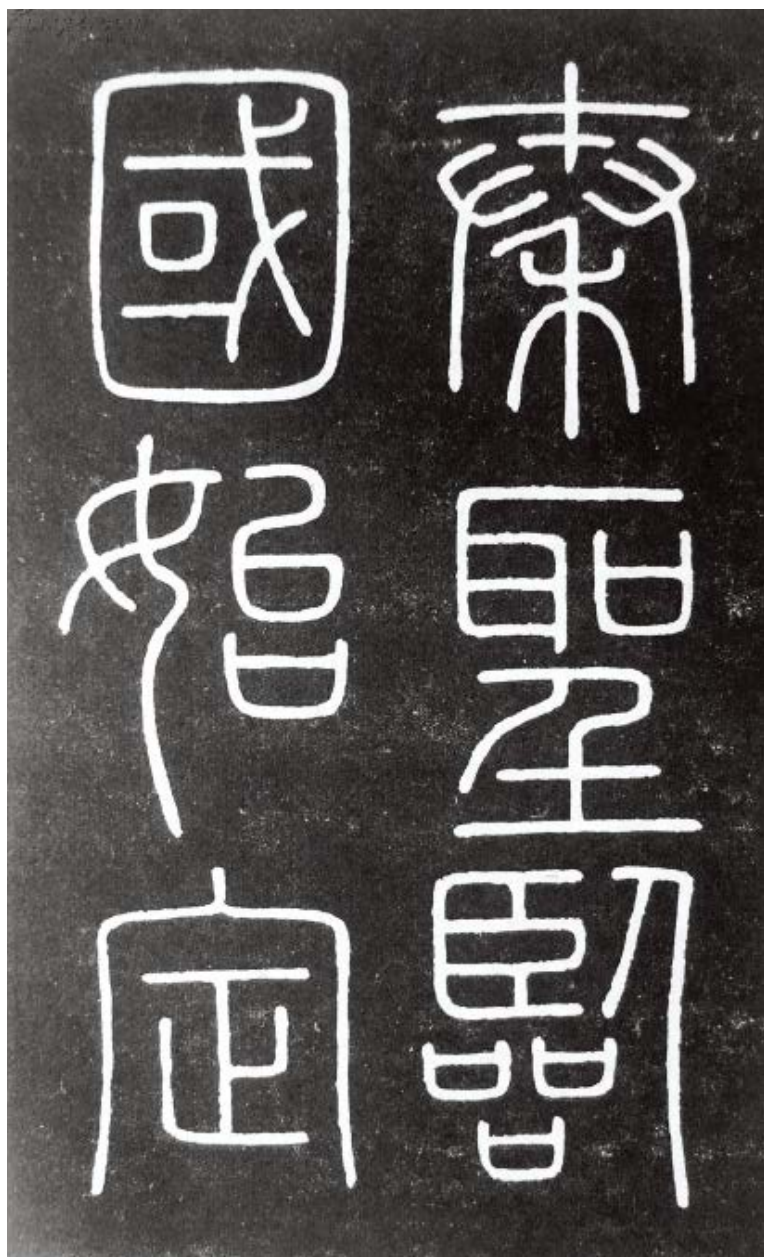 秦聖臨
國始定